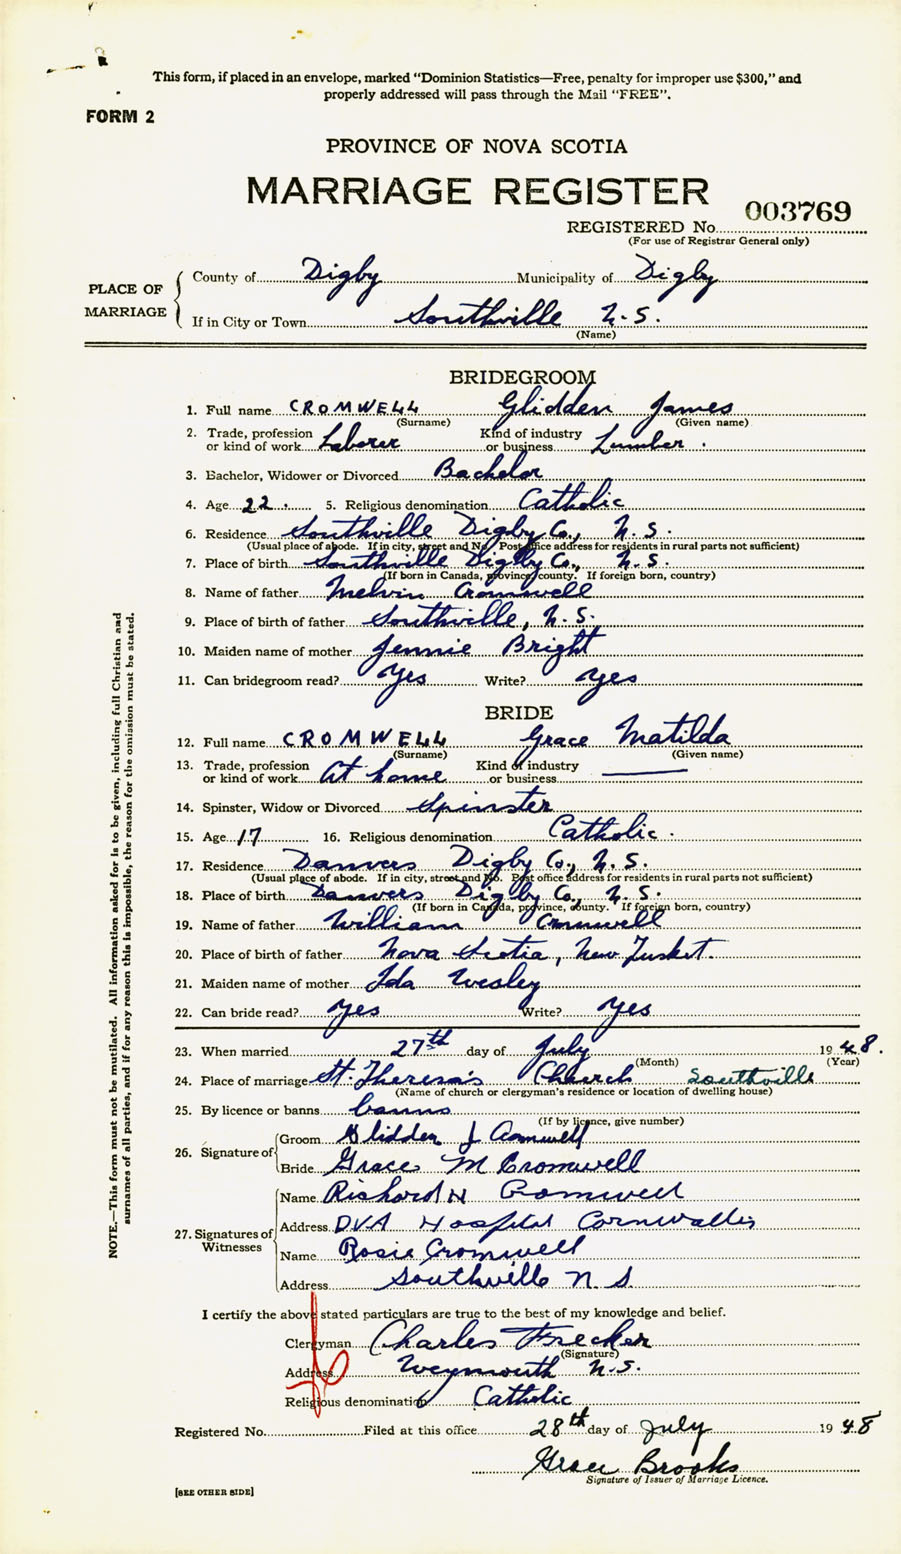 This form, if placed in an envelope, marked "Dominion Statistics—Free, penalty for improper use $300," and
properly addressed will pass through the Mail "FREE".
FORM 2
PROVINCE OF NOVA SCOTIA
MARRIAGE REGISTER
003769
REGISTERED No.
(For use of Registrar General only)
PLACE OF MARRIAGE
County of Digby Municipality of Digby
If in City or Town Southville N.S.
(Name)
BRIDEGROOM
1. Full name CROMWELL Glidden James
(Surname) (Given name)
2. Trade, profession or kind of work Laborer Kind of industry or business Lumber.
3. Bachelor, Widower or Divorced Bachelor
4. Age 22. 5. Religious denomination Catholic
6. Residence Southville Digby Co., N.S.
(Usual place of abode. If in city, street and No. Post office address for residents in rural parts not sufficient)
7. Place of birth Southville Digby Co., N.S.
(If born in Canada, province, county. If foreign born, country)
8. Name of father Melvin Cromwell
9. Place of birth of father Southville, N.S.
10. Maiden name of mother Jennie Bright
11. Can bridegroom read? Yes Write? Yes
BRIDE
12. Full name CROMWELL Grace Matilda
(Surname) (Given name)
13. Trade, profession or kind of work At home Kind of industry or business
14. Spinster, Widow or Divorced Spinster
15. Age 17 16. Religious denomination Catholic.
17. Residence Danvers Digby Co., N.S.
(Usual place of abode. If in city, street and No. Post office address for residents in rural parts not sufficient)
18. Place of birth Danvers Digby Co., N.S.
(If born in Canada, province, county. If foreign born, country)
19. Name of father William Cromwell
20. Place of birth of father Nova Scotia, New Tusket.
21. Maiden name of mother Ida Wesley
22. Can bride read? Yes Write? Yes
23. When married 27th day of July 1948.
(Month) (Year)
24. Place of marriage St. Theresa's Church Southville
(Name of church or clergyman's residence or location of dwelling house)
25. By licence or banns banns
(If by licence, give number)
26. Signature of
Groom Glidden J Cromwell
Bride Grace M Cromwell
27. Signatures of Witnesses
Name Richard H Cromwell
Address DVA Hospital Cornwallis
Name Rosie Cromwell
Address Southville N S.
I certify the above stated particulars are true to the best of my knowledge and belief.
Clergyman Charles Frecker
(Signature)
Address Weymouth N.S.
Religious denomination Catholic
Registered No. Filed at this office 28th day of July 1948
Grace Brooks
Signature of Issuer of Marriage Licence.
[SEE OTHER SIDE]
NOTE.—This form must not be mutilated. All information asked for is to be given, including full Christian and
surnames of all parties, and if for any reason this is impossible, the reason for the omission must be stated.